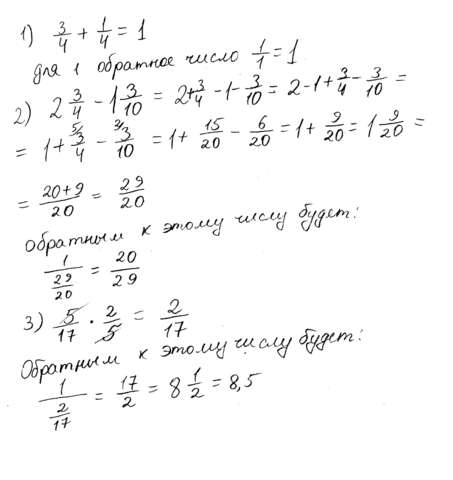 1) 3/4 + 1/4 = 1
для 1 обратное число 1/1 = 1
2) 2 3/4 - 1 3/10 = 2 + 3/4 - 1 - 3/10 = 2 - 1 + 3/4 - 3/10 =
= 1 + 5/ 3/4 - 3/ 3/10 = 1 + 15/20 - 6/20 = 1 + 9/20 = 1 9/20 =
= 20+9/20 = 29/20
обратным к этому числу будет:
1/29/20 = 20/29
3) 5/17 · 2/5 = 2/17
Обратным к этому числу будет:
1/2/17 = 17/2 = 8 1/2 = 8,5